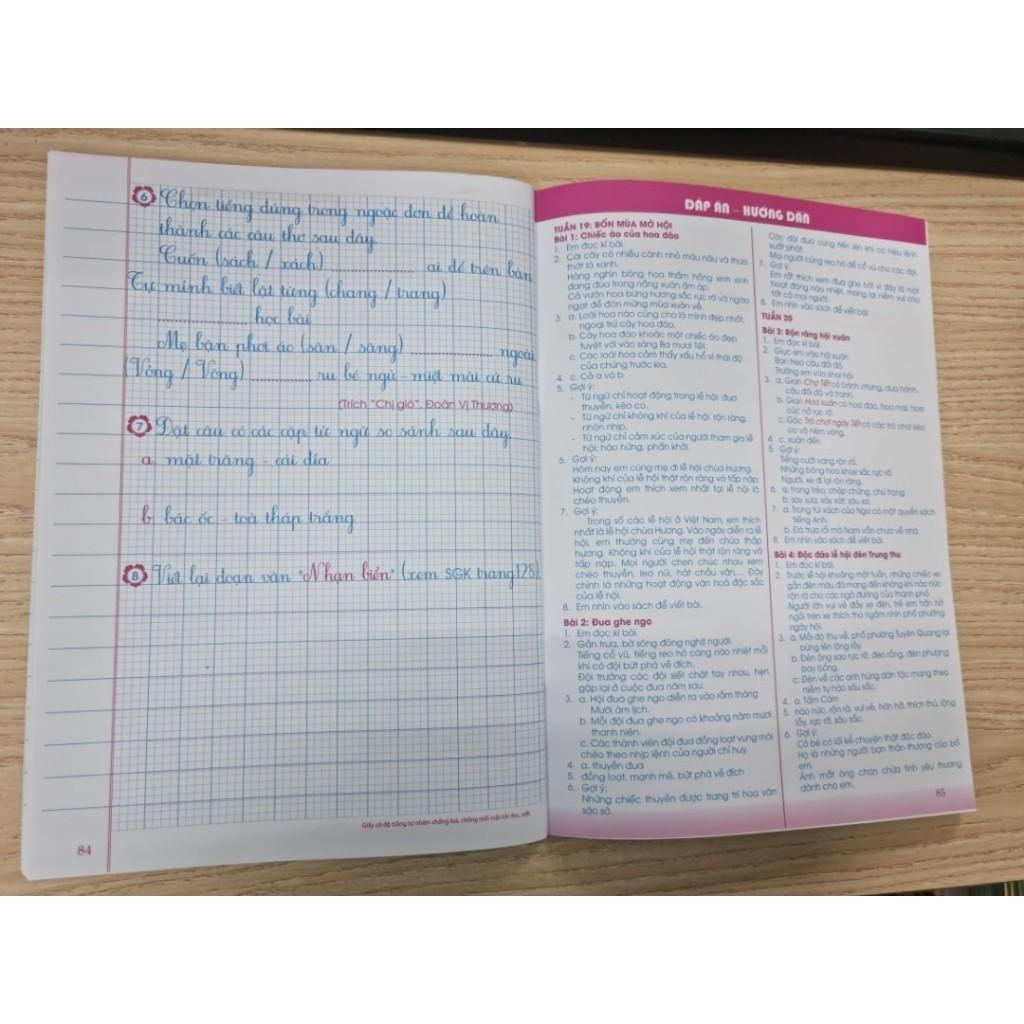 6 Chọn tiếng đúng trong ngoặc đơn để hoàn
thành các câu thơ sau đây.
Cuốn (sách / xách) .................... ai để trên bàn
Tự mình biết lật từng (chang / trang)
.................... học bài
Mẹ bận phơi áo (sân / sâng) .................... ngoài
(Võng / Vỏng) .............. ru bé ngủ - miệt mài cứ ru
(Trích "Chị gió", Đoàn Vị Thượng)
7 Đặt câu có các cặp từ ngữ so sánh sau đây.
a. mặt trăng - cái đĩa
b. bác ốc - toà tháp trắng
8 Viết lại đoạn văn "Nhạn biển" (xem SGK trang 128)
Giấy có độ trắng tự nhiên chống loá, chống mỏi mắt khi đọc, viết
84
ĐÁP ÁN – HƯỚNG DẪN
TUẦN 19: BỐN MÙA MỞ HỘI
Bài 1: Chiếc áo của hoa đào
1. Em đọc kĩ bài.
2. Cái cây có nhiều cành nhỏ màu nâu và thưa
thớt lá xanh.
Hàng nghìn bông hoa thắm hồng xinh xinh
đang đùa trong nắng xuân ấm áp.
Cả vườn hoa bừng hương sắc rực rỡ và ngào
ngạt để đón mừng mùa xuân về.
3. a. Loài hoa nào cũng cho là mình đẹp nhất,
ngoại trừ cây hoa đào.
b. Cây hoa đào khoác một chiếc áo đẹp
tuyệt vời vào sáng Ba mươi Tết.
c. Các loài hoa cảm thấy xấu hổ vì thái độ
của chúng trước kia.
4. c. Cả a và b
5. Gợi ý:
- Từ ngữ chỉ hoạt động trong lễ hội: đua
thuyền, kéo co.
- Từ ngữ chỉ không khí của lễ hội: rộn ràng,
nhộn nhịp.
- Từ ngữ chỉ cảm xúc của người tham gia lễ
hội: hào hứng, phấn khởi.
6. Gợi ý:
Hôm nay em cùng mẹ đi lễ hội chùa Hương.
Không khí của lễ hội thật rộn ràng và tấp nập.
Hoạt động em thích xem nhất tại lễ hội là
chèo thuyền.
7. Gợi ý:
Trong số các lễ hội ở Việt Nam, em thích
nhất là lễ hội chùa Hương. Vào ngày diễn ra lễ
hội, em thường cùng mẹ đến chùa thắp
hương. Không khí của lễ hội thật rộn ràng và
tấp nập. Mọi người chen chúc nhau xem
chèo thuyền, leo núi, hát chầu văn... Đây
chính là những hoạt động văn hoá đặc sắc
của lễ hội.
8. Em nhìn vào sách để viết bài.
Bài 2: Đua ghe ngo
1. Em đọc kĩ bài.
2. Gần trưa, bờ sông đông nghịt người.
Tiếng cổ vũ, tiếng reo hò càng náo nhiệt mỗi
khi có đội bứt phá về đích.
Đội trưởng các đội siết chặt tay nhau, hẹn
gặp lại ở cuộc đua năm sau.
3. a. Hội đua ghe ngo diễn ra vào rằm tháng
Mười âm lịch.
b. Mỗi đội đua ghe ngo có khoảng năm mươi
thành niên.
c. Các thành viên đội đua đồng loạt vung mái
chèo theo nhịp lệnh của người chỉ huy.
4. a. thuyền đua
5. đồng loạt, mạnh mẽ, bứt phá về đích
6. Gợi ý:
Những chiếc thuyền được trang trí hoa văn
sặc sỡ.
Các đội đua cùng tiến lên khi có hiệu lệnh
xuất phát.
Mọi người cùng reo hò để cổ vũ cho các đội.
7. Gợi ý:
Em rất thích xem đua ghe bởi vì đây là một
hoạt động náo nhiệt, mang lại niềm vui cho
tất cả mọi người.
8. Em nhìn vào sách để viết bài.
TUẦN 20
Bài 3: Rộn ràng hội xuân
1. Em đọc kĩ bài.
2. Giục em vào hội xuân
Bạn treo câu đối đỏ
Trường em vừa khai hội
3. a. Gian Chợ Tết có bánh chưng, dưa hành,
câu đối đỏ và tranh.
b. Gian Hoa xuân có hoa đào, hoa mai, hoa
cúc nở rực rỡ.
c. Góc Trò chơi ngày Tết có các trò chơi kéo
co và ném vòng.
4. c. xuân đến
5. Gợi ý:
Tiếng cười vang rộn rã.
Những bông hoa khoe sắc rực rỡ.
Người, xe đi lại rộn ràng.
6. a. trong trẻo, chập chững, chú trọng
b. say sưa, xây xát, sâu xa
7. a. Trong túi xách của Nga có một quyển sách
tiếng Anh.
b. Đã trưa rồi mà Nam vẫn chưa về nhà.
8. Em nhìn vào sách để viết bài.
Bài 4: Độc đáo lễ hội đèn Trung thu
1. Em đọc kĩ bài.
2. Trước lễ hội khoảng một tuần, những chiếc xe
gắn đèn màu đã mang đến không khí náo nức
rộn rã cho các ngả đường của thành phố.
Người lớn vui vẻ đẩy xe đèn, trẻ em hớn hở
ngồi trên xe thích thú ngắm nhìn phố phường
ngày hội.
3. a. Mỗi độ thu về, phố phường Tuyên Quang lại
bừng lên lộng lẫy.
b. Đèn ông sao rực rỡ, đèn rồng, đèn phượng
bay bổng.
c. Đèn về các anh hùng dân tộc mang theo
niềm tự hào sâu sắc.
4. a. Tấm Cám
5. náo nức, rộn rã, vui vẻ, hớn hở, thích thú, lộng
lẫy, rực rỡ, sâu sắc.
6. Gợi ý:
Cô bé có lối kể chuyện thật độc đáo.
Họ là những người bạn thân thương của bố
em.
Ánh mắt ông chan chứa tình yêu thương
dành cho em.
85